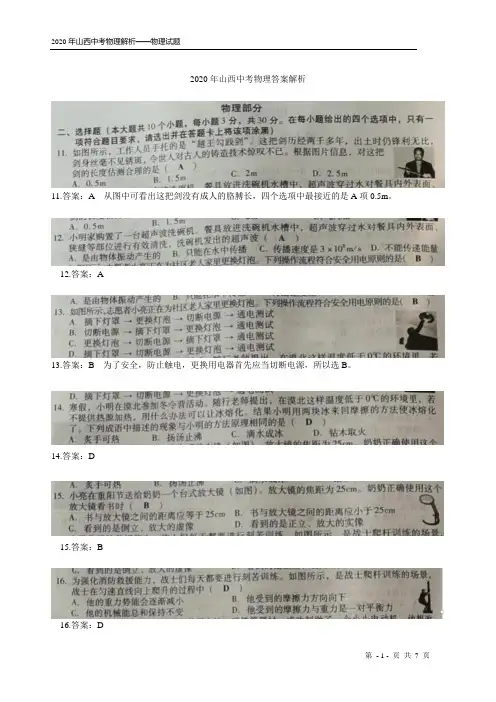 2020年山西中考物理解析——物理试题
2020年山西中考物理答案解析
物理部分
二、选择题(本大题共10个小题,每小题3分,共30分。在每小题给出的四个选项中,只有一
项符合题目要求,请选出并在答题卡上将该项涂黑)
11. 如图所示,工作人员手托的是“越王勾践剑”。这把剑历经两千多年,出土时仍锋利无比,
剑身丝毫不见锈斑,令世人对古人的铸造技术惊叹不已。根据图片信息,对这把
剑的长度估测合理的是( A )
A. 0.5m B. 1.5m C. 2m D. 2.5m
餐具放进洗碗机水槽中,超声波穿过水对餐具内外表面、
11.答案:A 从图中可看出这把剑没有成人的胳膊长,四个选项中最接近的是A项0.5m。
A. 0.5m B. 1.5m
12. 小明家购置了一台超声波洗碗机。餐具放进洗碗机水槽中,超声波穿过水对餐具内外表面、
狭缝等部位进行有效清洗。洗碗机发出的超声波( A )
A. 是由物体振动产生的 B. 只能在水中传播 C. 传播速度是3×10⁸m/s D. 不能传递能量
下列操作流程符合安全用电原则的是( B )
12.答案:A
A. 是由物体振动产生的
13. 如图所示,志愿者小亮正在为社区老人家里更换灯泡。下列操作流程符合安全用电原则的是( B )
A. 摘下灯罩 → 更换灯泡 → 切断电源 → 通电测试
B. 切断电源 → 摘下灯罩 → 更换灯泡 → 通电测试
C. 更换灯泡 → 切断电源 → 摘下灯罩 → 通电测试
D. 摘下灯罩 → 切断电源 → 更换灯泡 → 通电测试
13.答案:B 为了安全,防止触电,更换用电器首先应当切断电源,所以选B。
D. 摘下灯罩 → 切断电源 → 更换灯泡 → 通电测试
14. 寒假,小明在漠北参加冬令营活动。随行老师提出,在漠北这样温度低于0℃的环境里,若
不提供热源加热,用什么办法可以让冰熔化。结果小明用两块冰来回摩擦的方法使冰熔化
了。下列成语中描述的现象与小明的方法原理相同的是( D )
A. 炙手可热 B. 扬汤止沸 C. 滴水成冰 D. 钻木取火
14.答案:D
A. 炙手可热 B. 扬汤止沸
15. 小亮在重阳节送给奶奶一个台式放大镜(如图)。放大镜的焦距为25cm。奶奶正确使用这个
放大镜看书时( B )
A. 书与放大镜之间的距离应等于25cm B. 书与放大镜之间的距离应小于25cm
C. 看到的是倒立、放大的虚像 D. 看到的是正立、放大的实像
15.答案:B
C. 看到的是倒立、放大的虚像
16. 为强化消防救援能力,战士们每天都要进行刻苦训练。如图所示,是战士爬杆训练的场景,
战士在匀速直线向上爬升的过程中( D )
A. 他的重力势能会逐渐减小 B. 他受到的摩擦力方向向下
C. 他的机械能总和保持不变 D. 他受到的摩擦力与重力是一对平衡力
16.答案:D
第 - 1 - 页 共 7 页